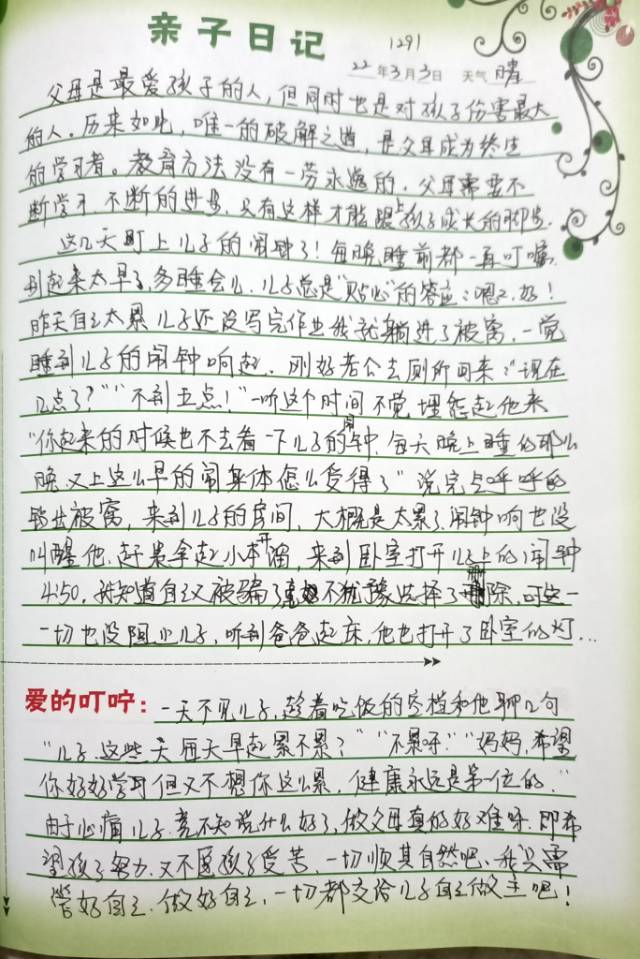 亲子日记
1291
22年3月3日 天气 晴
父母是最爱孩子的人，但同时也是对孩子伤害最大
的人。历来如此，唯一的破解之道，是父母成为终生
的学习者。教育方法没有一劳永逸的，父母需要不
断学习，不断的进步，只有这样才能跟上孩子成长的脚步。
这几天盯上儿子的闹钟了！每晚睡前都一再叮嘱，
别起来太早了，多睡会儿，儿子总是“贴心”的答应：嗯嗯，好！
昨天自己太累儿子还没写完作业我就躺进了被窝，一觉
睡到儿子的闹钟响起，刚好老公去厕所回来：“现在
几点了？”“不到五点！”一听这个时间不觉埋怨起他来
“你起来的时候也不去看一下儿子的闹钟，每天晚上睡的那么
晚，又上这么早的闹身体怎么受得了”说完点呼呼的
钻出被窝，来到儿子的房间，大概是太累了，闹钟响也没
叫醒他，赶紧拿起小本开溜，来到卧室打开儿子上的闹钟
4:50，我知道自己又被骗了 不犹豫选择了删除，可这一
一切也没阻止儿子，听到爸爸起床，他也打开了卧室的灯...
爱的叮咛：一天不见儿子，趁着吃饭的空档和他聊几句
“儿子，这些天每天早起累不累？”“不累呀！”“妈妈，希望
你好好学习但又不想你这么累，健康永远是第一位的。”
由于心痛儿子，竟不知说什么好了，做父母真的好难呀，即希
望孩子努力，又不愿孩子受苦，一切顺其自然吧，我只需
管好自己，做好自己，一切都交给儿子自己做主吧！